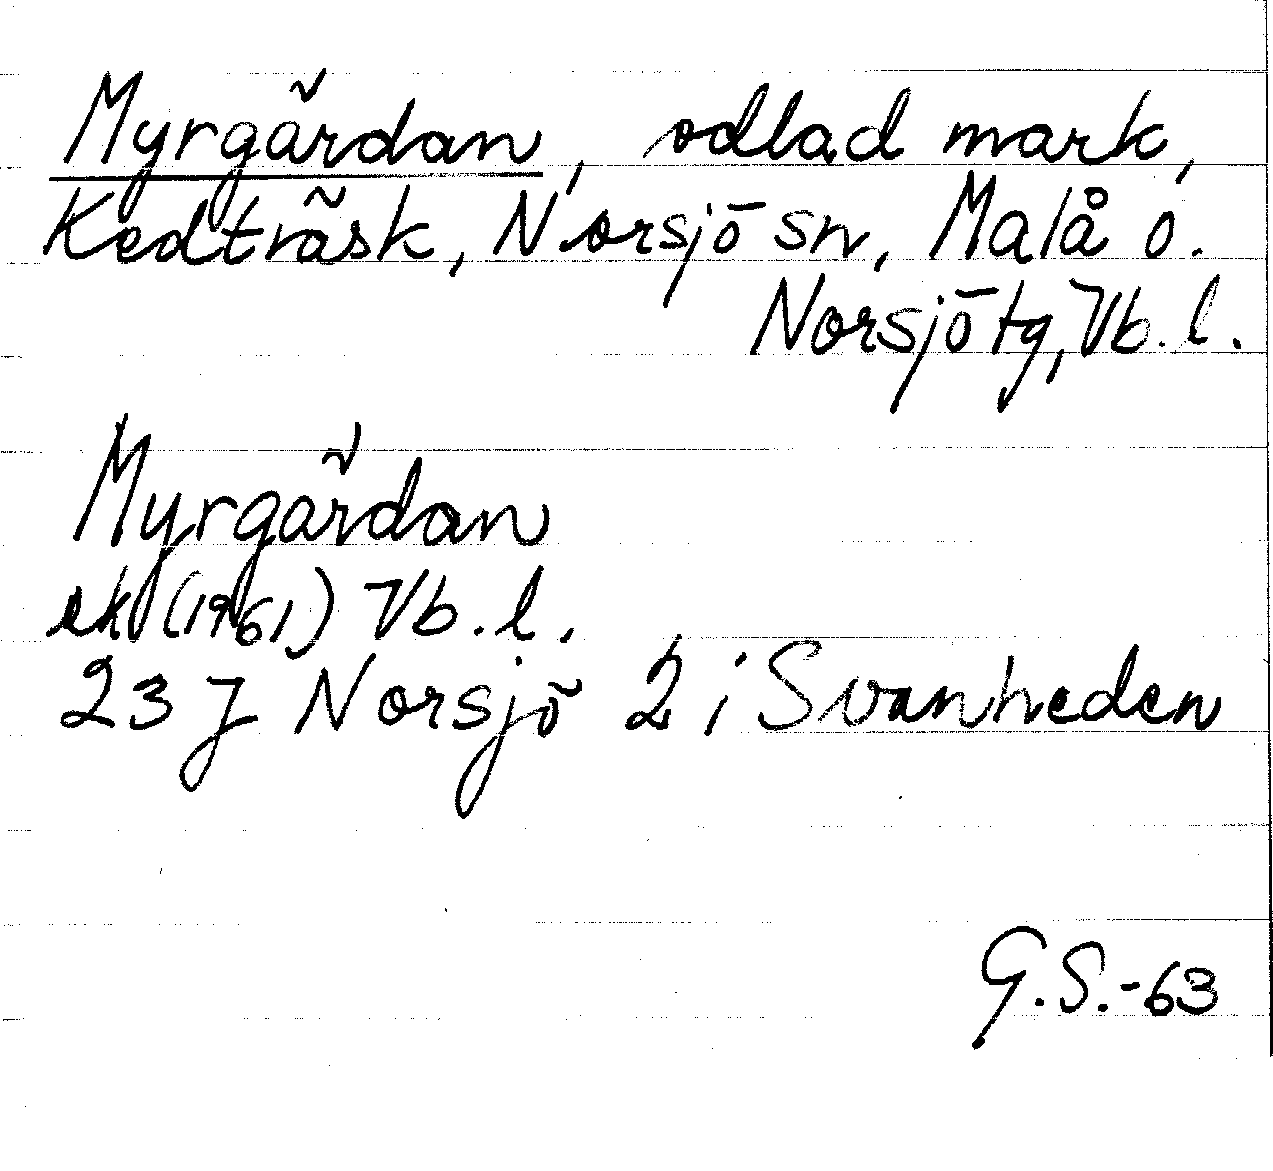 Myrgärdan, odlad mark,
Kedträsk, Norsjö sn, Malå o.
Norsjö tg, Vb. l.
Myrgärdan
ek (1961) Vb. l.
23 J Norsjö 2 i Svanheden
G.S.-63